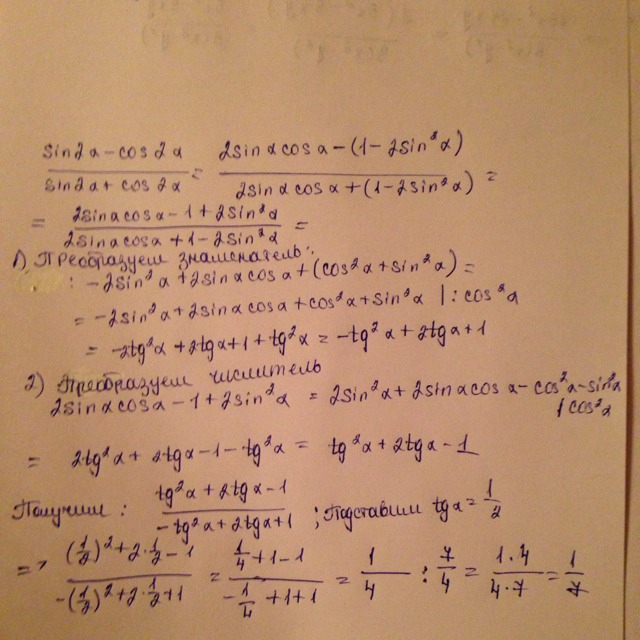 (sin2α − cos2α)/(sin2α + cos2α) = (2sinαcosα − (1 − 2sin²α))/(2sinαcosα + (1 − 2sin²α)) =
= (2sinαcosα − 1 + 2sin²α)/(2sinαcosα + 1 − 2sin²α) =
1) Преобразуем знаменатель:
: −2sin²α + 2sinαcosα + (cos²α + sin²α) =
= −2sin²α + 2sinαcosα + cos²α + sin²α | : cos²α
= −2tg²α + 2tgα + 1 + tg²α = −tg²α + 2tgα + 1
2) Преобразуем числитель
2sinαcosα − 1 + 2sin²α = 2sin²α + 2sinαcosα − cos²α − sin²α
/ cos²α
= 2tg²α + 2tgα − 1 − tg²α = tg²α + 2tgα − 1
Получим : (tg²α + 2tgα − 1)/(−tg²α + 2tgα + 1) ; Подставим tgα = 1/2
=> ((1/2)² + 2·1/2 − 1)/(−(1/2)² + 2·1/2 + 1) = (1/4 + 1 − 1)/(−1/4 + 1 + 1) = 1/4 : 7/4 = (1·4)/(4·7) = 1/7